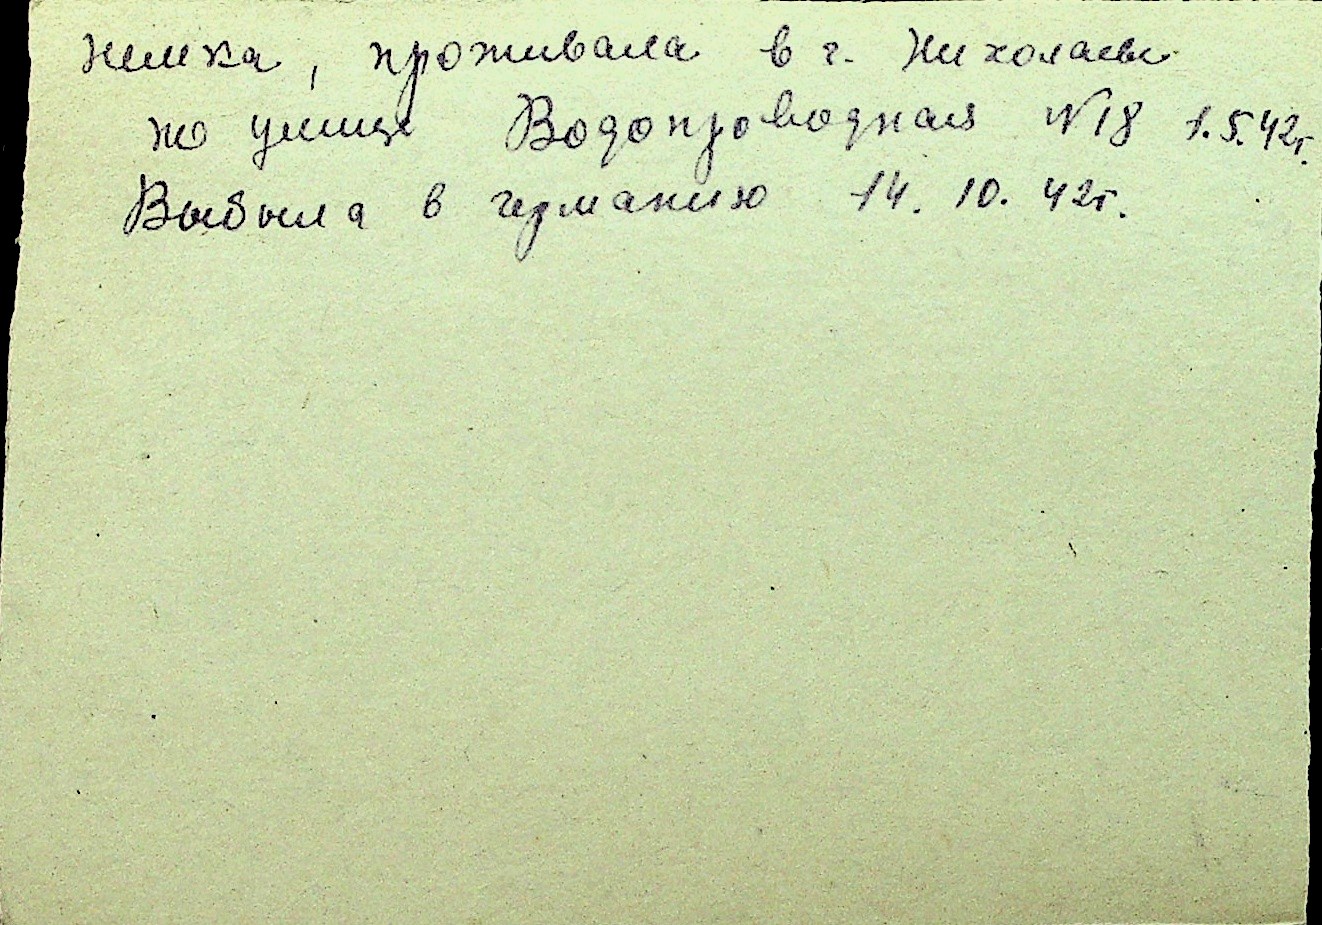 немка, проживала в г. Николаеве
по улице Водопроводная №18 1.5.42г.
Выбыла в германию 14. 10. 42г.